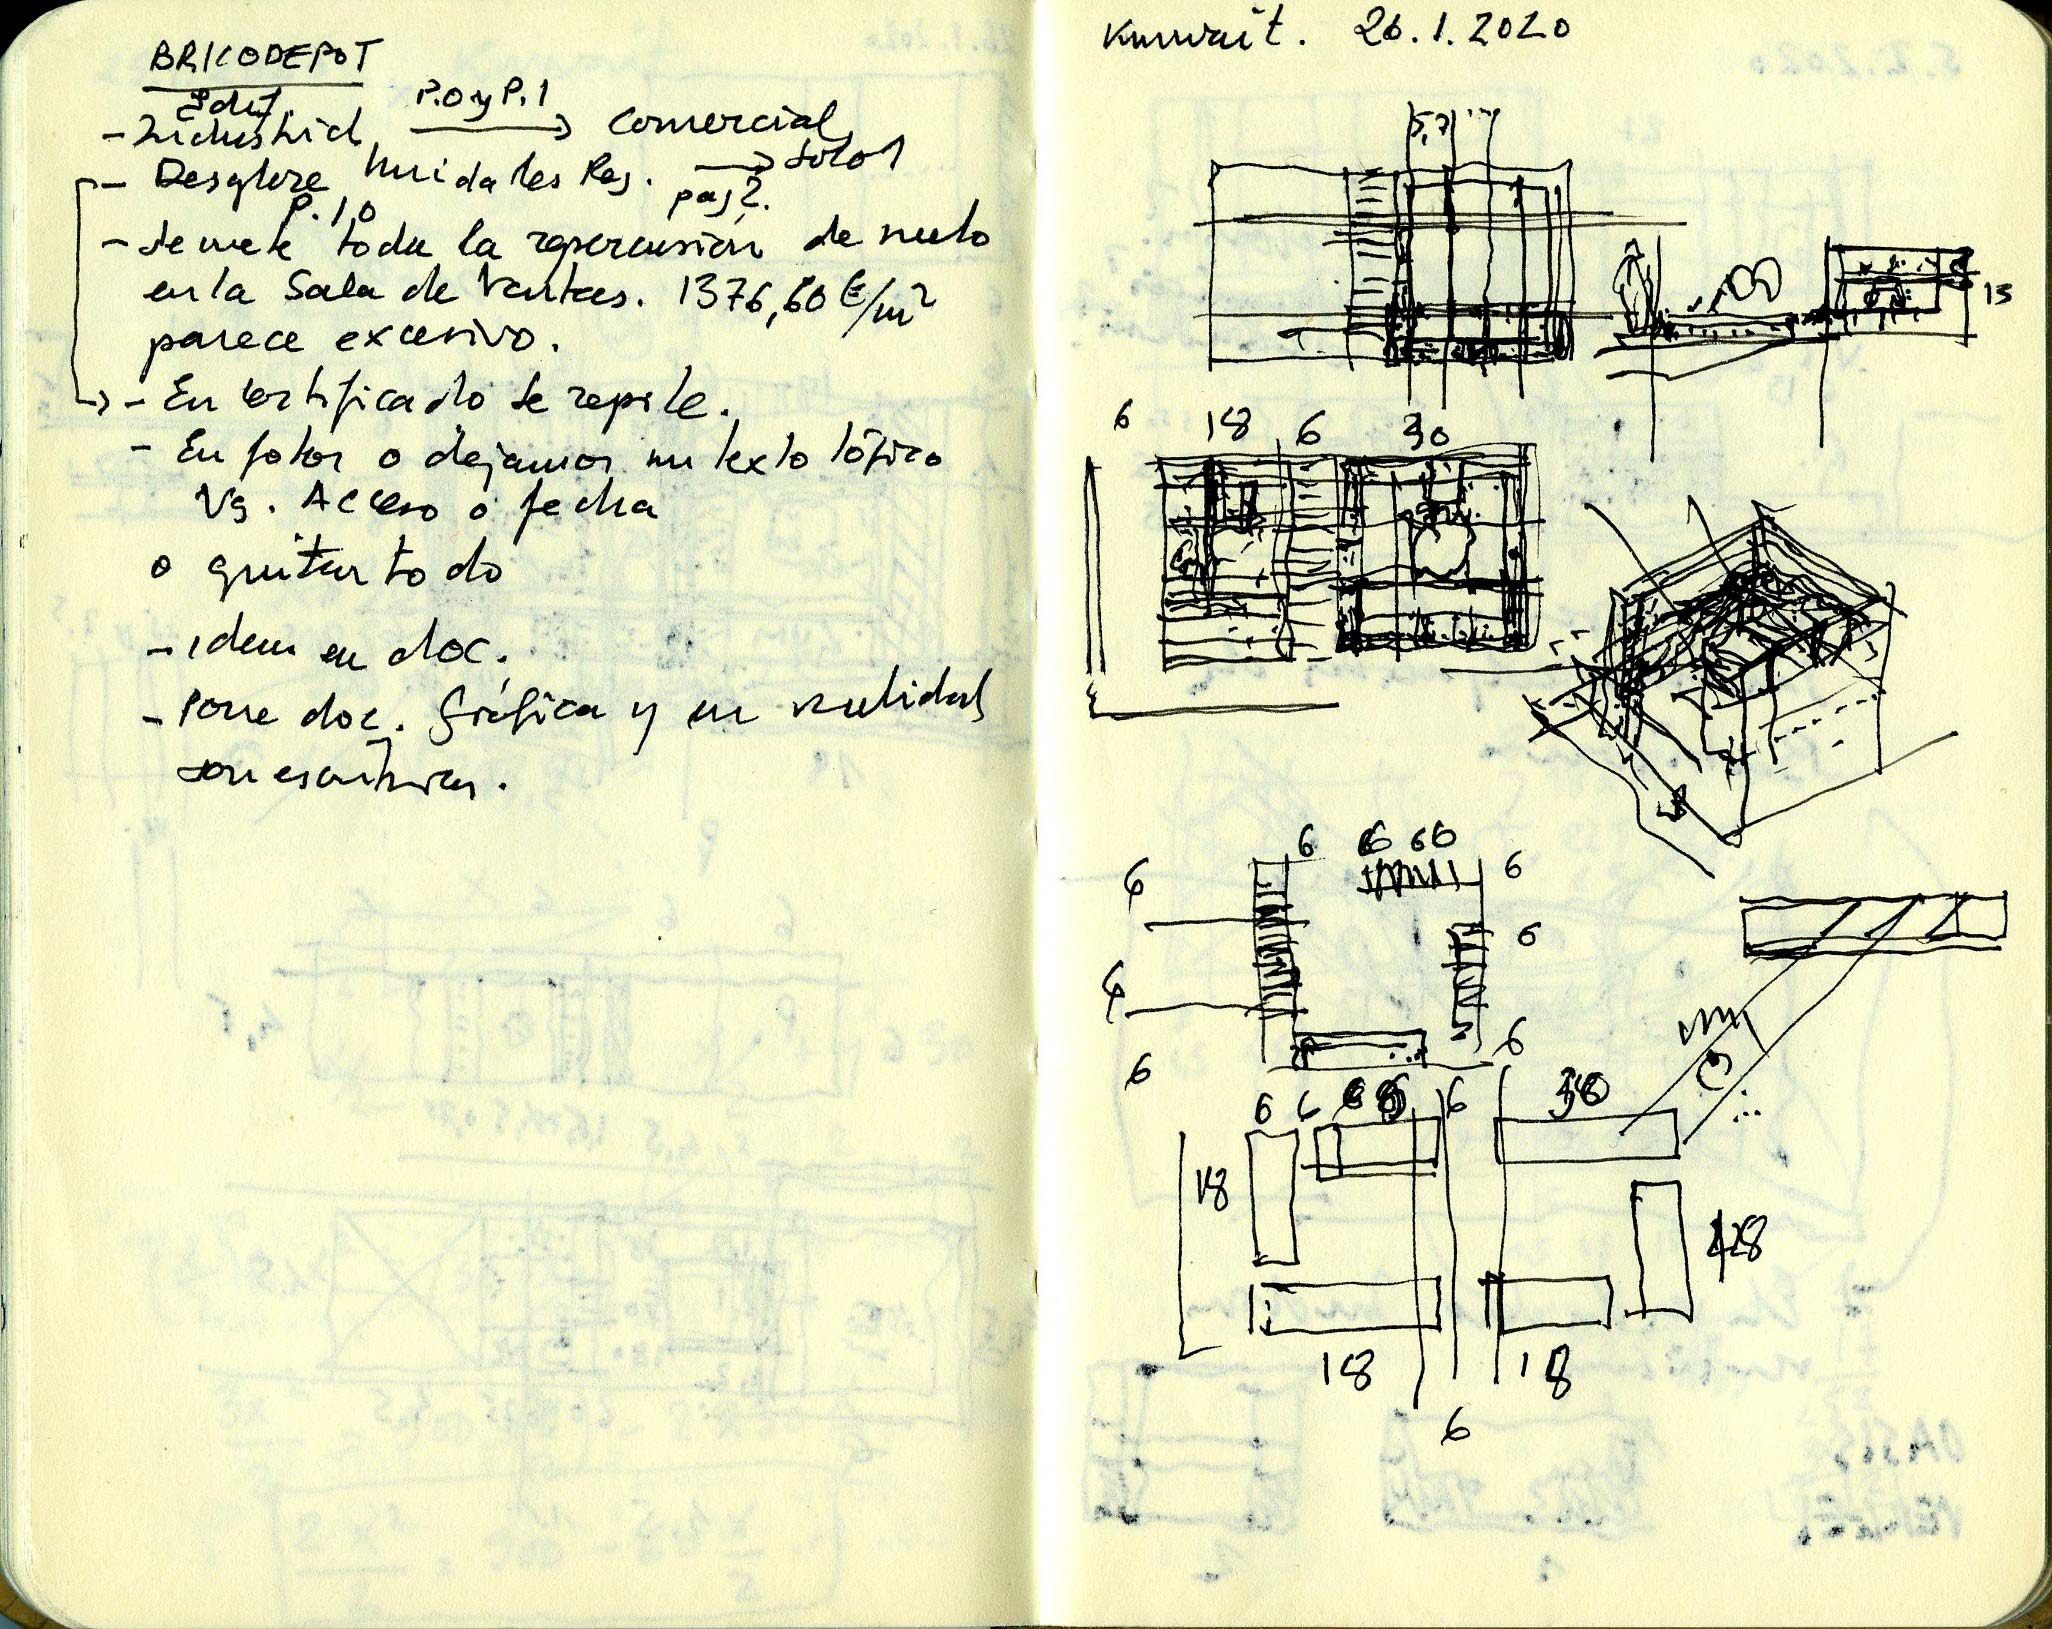 BRICODEPOT
Edif.
P.0 y P.1
- Industrial → Comercial
- Desglose Unidades Reg. → solo 1
pag 2.
P. 1,0
- Se mete toda la repercusión de suelo
en la Sala de Ventas. 1376,60 €/m²
parece excesivo.
- En certificado se repite.
- En fotos o dejamos un texto lógico
Vg. Acceso o fecha
o quitar todo
- idem en doc.
- Pone doc. gráfica y en realidad
son escrituras.
Kuwait. 26.1.2020
5,7
15
6 18 6 30
6 6 6 6 6
6
6
6
6
6
6
6 6 6 30
18
18 18
6